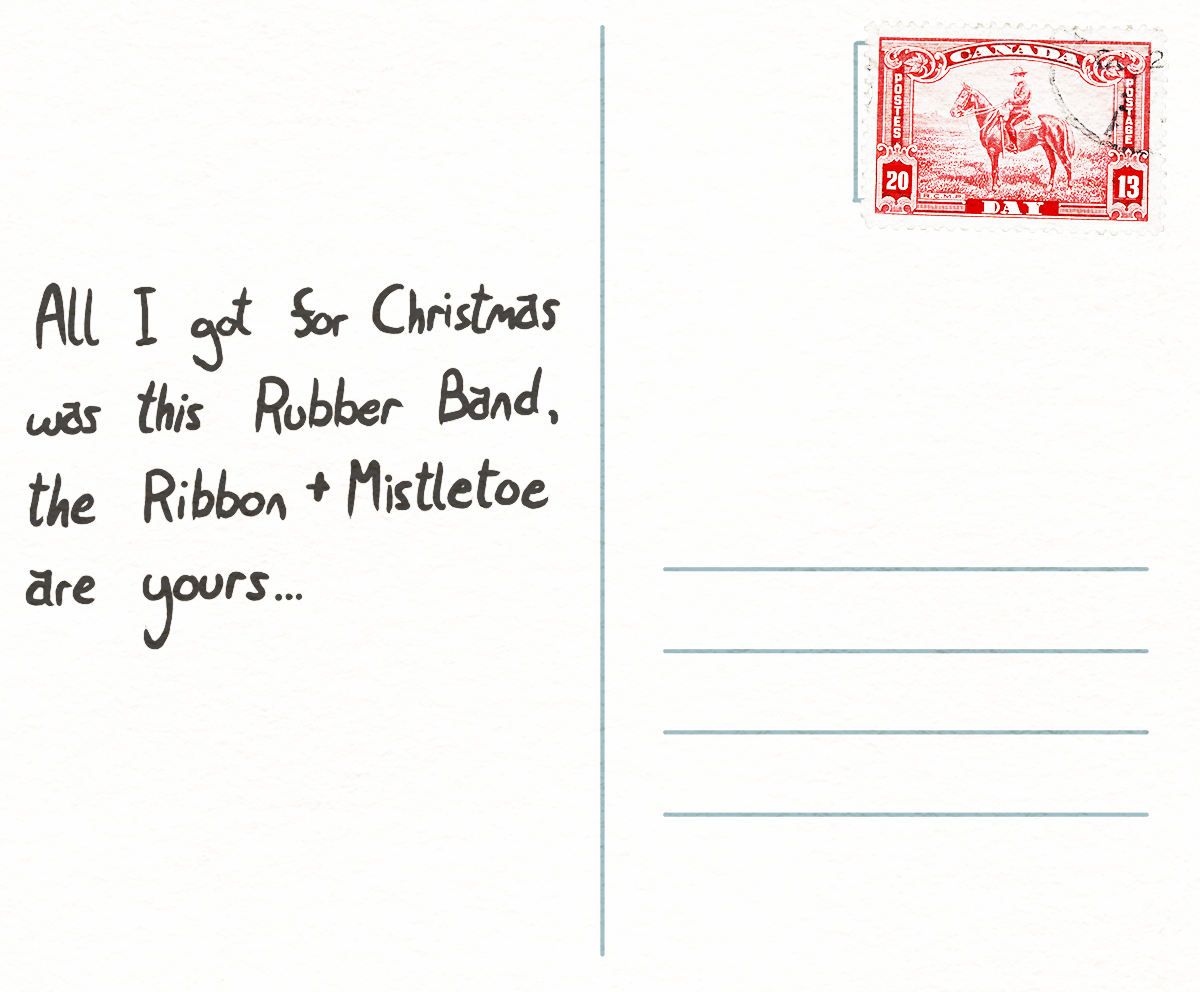 All I got for Christmas
was this Rubber Band,
the Ribbon + Mistletoe
are yours...
CANADA
POSTES
POSTAGE
20
13
R.C.M.P.
DAY
2